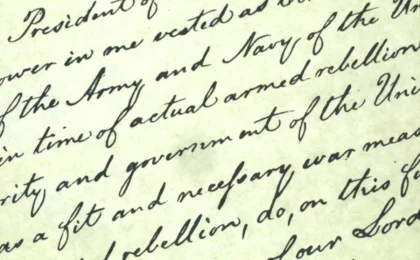 President of
ower in me vested as
of the Army and Navy of the Un
in time of actual armed rebellion
rity and government of the Uni
as a fit and necessary war meas
rebellion, do, on this fi
of our Lord